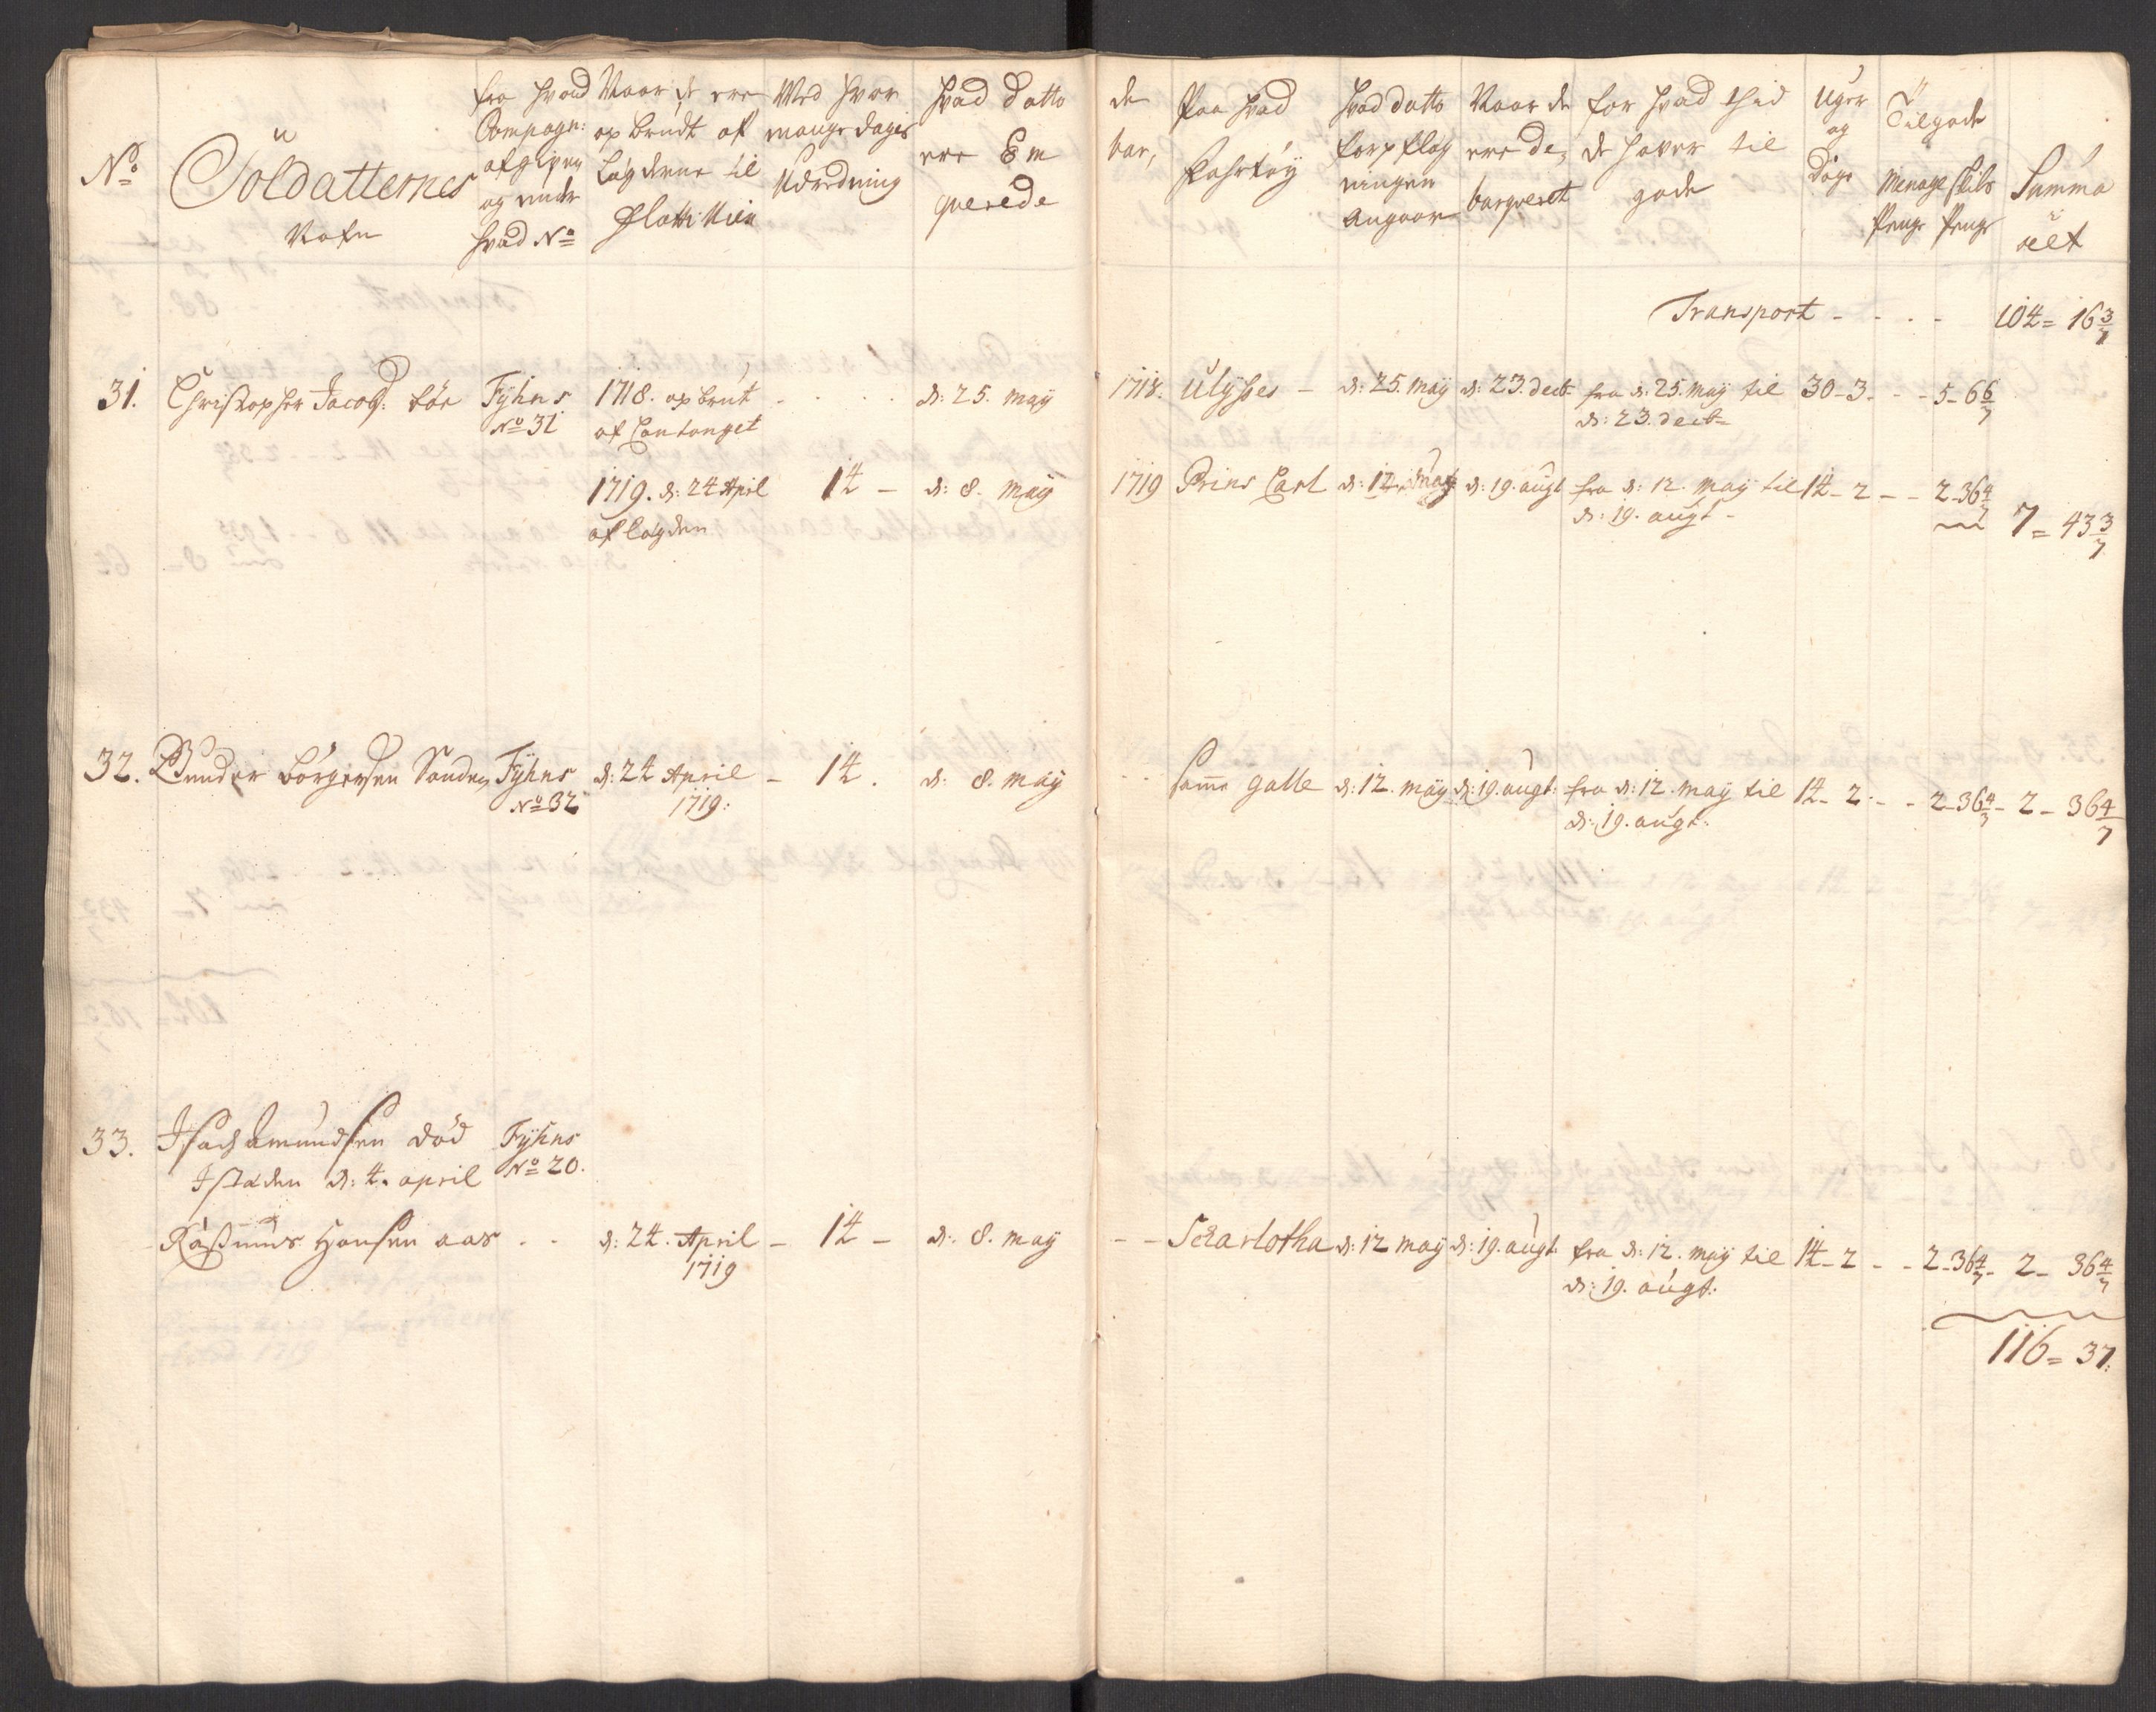 No
Soldatternes
Nafn
fra hvad
Compagn:
afgifven
og under
hvad No
Naar de ere
op brudt af
Lægderne til
Flottillien
Med hvor
mange dages
Udredning
hvad datto
ere Em
querede
de
bar,
Paa hvad
Fahrtøy
hvad datto
forpfleg
ningen
angaar
Naar de
ere de,
barqveret
for hvad thid
de hafver til
gode
Uger
og
dage
Tilgode
Menage
Penge
skibs
Penge
Summa
alt
Transport - - - - 104= 16 3/7
31. Christopher Jacob: bøe Fÿhns No 31 1718. op brut af Cantonget - - - d: 25. maÿ 1718. Ulÿsses - d: 25. maÿ d: 23. decb fra d: 25. maÿ til d: 23. decb 30-3. - - 5-6 6/7
1719. d: 24 April af Lægden 14 - d: 8. maÿ 1719 Prins Carl d: 12. maÿ d: 19. augt fra d: 12. maÿ til d: 19. augt - 14-2 - - 2-36 4/7 7= 43 3/7
32. Gunder Børgersen Sanden Fÿhns No 32 d: 24 April 1719: - 14. d: 8. maÿ - - samme galle d: 12. maÿ d: 19. augt: fra d: 12. maÿ til d: 19. augt: 14-2 - - 2-36 4/7 - 2 - 36 4/7
33. Isach Amundsen död Fÿhns No 20.
I staden d: 4. april
Rasmus Hansen aas - - d: 24. April 1719 - 14 - d: 8. maÿ - - Scharlotha d: 12 maÿ d: 19. augt: fra d: 12. maÿ til d: 19. augt: 14-2 - - 2-36 4/7 - 2 - 36 4/7
116= 37.